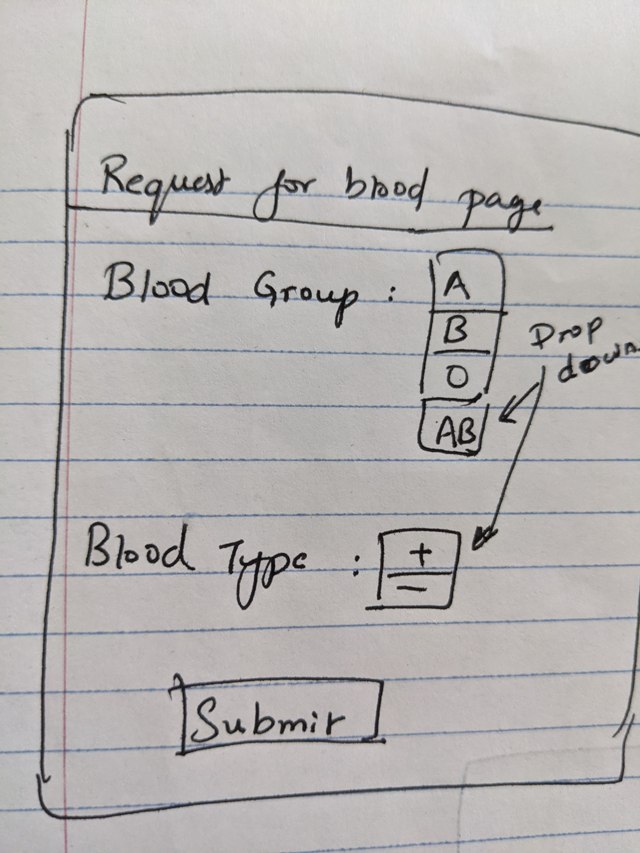 Request for blood page
Blood Group : A
B
O
AB
Drop
down
Blood Type : +
-
Submit